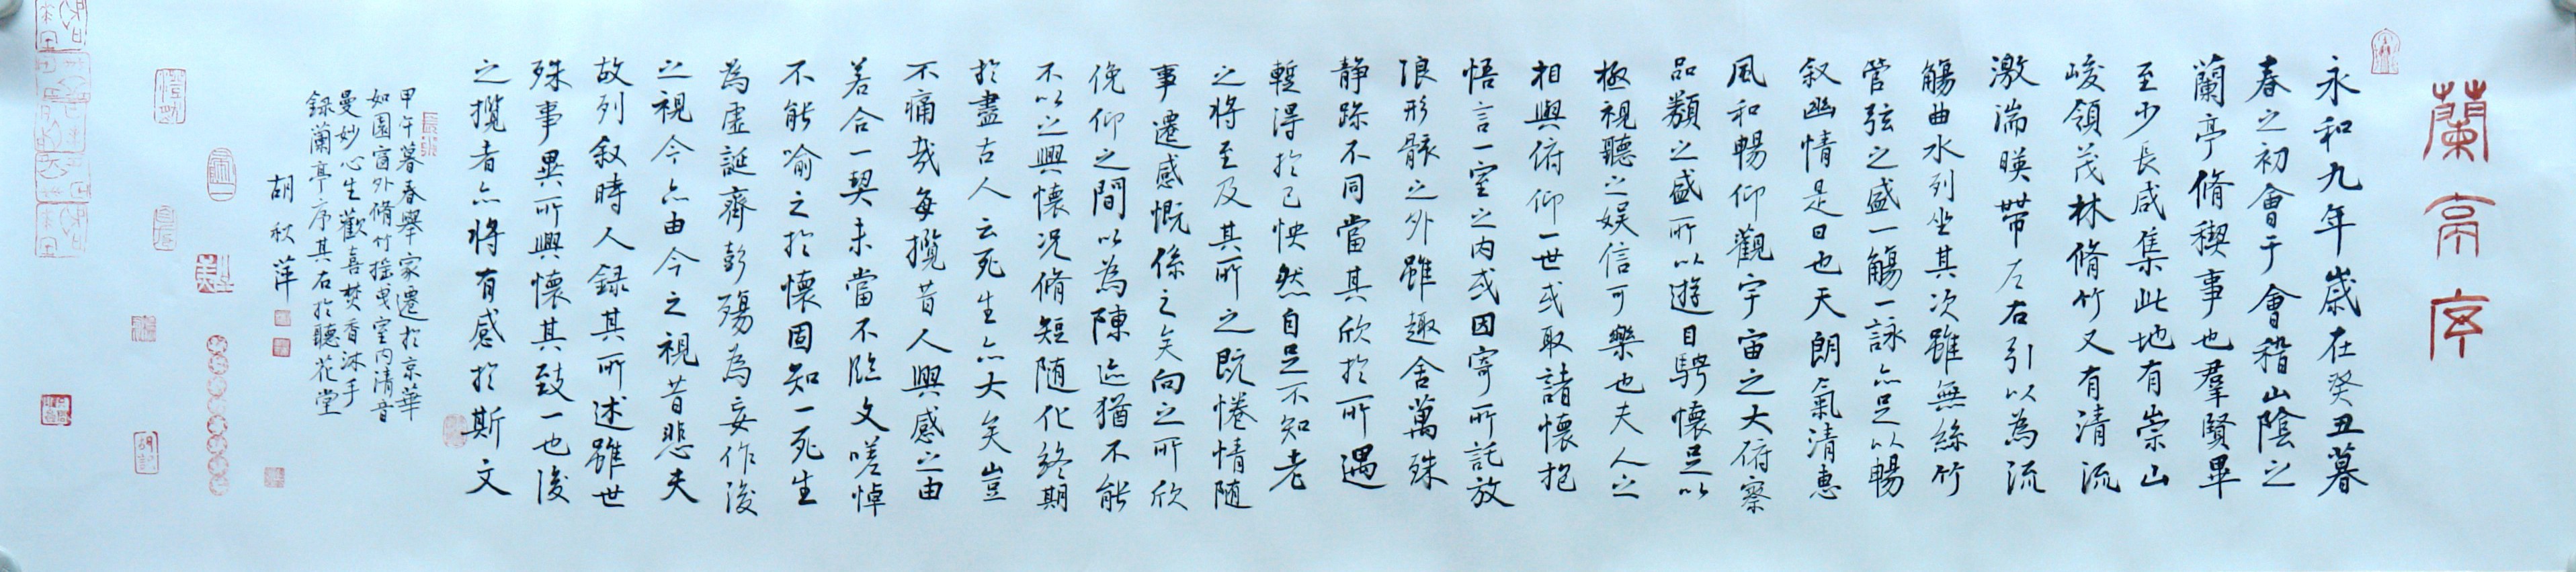 蘭亭序
永和九年歲在癸丑暮
春之初會于會稽山陰之
蘭亭脩稧事也羣賢畢
至少長咸集此地有崇山
峻領茂林脩竹又有清流
激湍暎帶左右引以為流
觴曲水列坐其次雖無絲竹
管弦之盛一觴一詠亦足以暢
叙幽情是日也天朗氣清惠
風和暢仰觀宇宙之大俯察
品類之盛所以遊目騁懷足以
極視聽之娱信可樂也夫人之
相與俯仰一世或取諸懷抱
悟言一室之内或因寄所託放
浪形骸之外雖趣舍萬殊
静躁不同當其欣於所遇
蹔得於己怏然自足不知老
之將至及其所之既惓情随
事遷感慨係之矣向之所欣
俛仰之間以為陳迹猶不能
不以之興懷况脩短随化終期
於盡古人云死生亦大矣豈
不痛哉每攬昔人興感之由
若合一契未嘗不臨文嗟悼
不能喻之於懷固知一死生
為虚誕齊彭殤為妄作後
之視今亦由今之視昔悲夫
故列叙時人録其所述雖世
殊事異所興懷其致一也後
之攬者亦將有感於斯文
甲午暮春舉家遷於京華
如園窗外脩竹摇曳室内清音
曼妙心生歡喜焚香沐手
録蘭亭序其右於聽花堂
胡秋萍